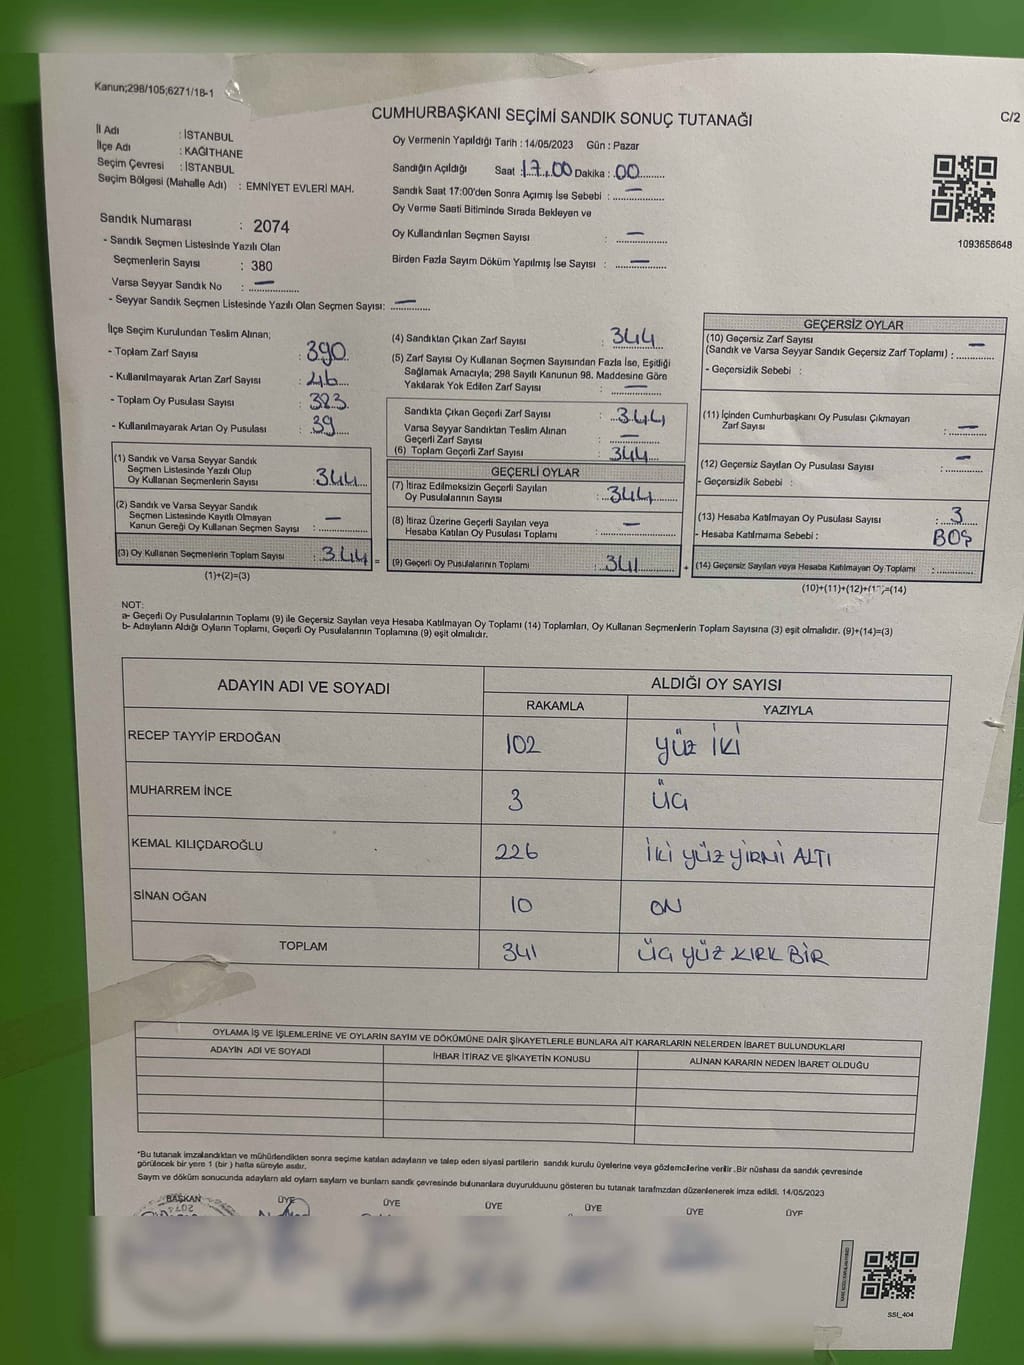 Kanun;298/105;6271/18-1
CUMHURBAŞKANI SEÇİMİ SANDIK SONUÇ TUTANAĞI
C/2
İl Adı : İSTANBUL
İlçe Adı : KAĞITHANE
Seçim Çevresi : İSTANBUL
Seçim Bölgesi (Mahalle Adı) : EMNİYET EVLERİ MAH.
Oy Vermenin Yapıldığı Tarih : 14/05/2023 Gün : Pazar
Sandığın Açıldığı Saat : 17.00 Dakika : 00
Sandık Saat 17:00'den Sonra Açımış İse Sebebi : —
Oy Verme Saati Bitiminde Sırada Bekleyen ve
Oy Kullandırılan Seçmen Sayısı : —
Birden Fazla Sayım Döküm Yapılmış İse Sayısı : —
1093656648
Sandık Numarası : 2074
- Sandık Seçmen Listesinde Yazılı Olan
Seçmenlerin Sayısı : 380
Varsa Seyyar Sandık No : —
- Seyyar Sandık Seçmen Listesinde Yazılı Olan Seçmen Sayısı: —
İlçe Seçim Kurulundan Teslim Alınan;
- Toplam Zarf Sayısı : 390
- Kullanılmayarak Artan Zarf Sayısı : 46
- Toplam Oy Pusulası Sayısı : 383
- Kullanılmayarak Artan Oy Pusulası : 39
(1) Sandık ve Varsa Seyyar Sandık
Seçmen Listesinde Yazılı Olup
Oy Kullanan Seçmenlerin Sayısı : 344
(2) Sandık ve Varsa Seyyar Sandık
Seçmen Listesinde Kayıtlı Olmayan
Kanun Gereği Oy Kullanan Seçmen Sayısı : —
(3) Oy Kullanan Seçmenlerin Toplam Sayısı : 344
(1)+(2)=(3)
=
(4) Sandıktan Çıkan Zarf Sayısı : 344
(5) Zarf Sayısı Oy Kullanan Seçmen Sayısından Fazla İse, Eşitliği
Sağlamak Amacıyla; 298 Sayılı Kanunun 98. Maddesine Göre
Yakılarak Yok Edilen Zarf Sayısı : —
Sandıkta Çıkan Geçerli Zarf Sayısı : 344
Varsa Seyyar Sandıktan Teslim Alınan
Geçerli Zarf Sayısı : —
(6) Toplam Geçerli Zarf Sayısı : 344
GEÇERLİ OYLAR
(7) İtiraz Edilmeksizin Geçerli Sayılan
Oy Pusulalarının Sayısı : 344
(8) İtiraz Üzerine Geçerli Sayılan veya
Hesaba Katılan Oy Pusulası Toplamı : —
(9) Geçerli Oy Pusulalarının Toplamı : 341
+
GEÇERSİZ OYLAR
(10) Geçersiz Zarf Sayısı
(Sandık ve Varsa Seyyar Sandık Geçersiz Zarf Toplamı) : —
- Geçersizlik Sebebi :
(11) İçinden Cumhurbaşkanı Oy Pusulası Çıkmayan
Zarf Sayısı : —
(12) Geçersiz Sayılan Oy Pusulası Sayısı : —
- Geçersizlik Sebebi :
(13) Hesaba Katılmayan Oy Pusulası Sayısı : 3
- Hesaba Katılmama Sebebi : BOŞ
(14) Geçersiz Sayılan veya Hesaba Katılmayan Oy Toplamı :
(10)+(11)+(12)+(1 )=(14)
NOT:
a- Geçerli Oy Pusulalarının Toplamı (9) ile Geçersiz Sayılan veya Hesaba Katılmayan Oy Toplamı (14) Toplamları, Oy Kullanan Seçmenlerin Toplam Sayısına (3) eşit olmalıdır. (9)+(14)=(3)
b- Adayların Aldığı Oyların Toplamı, Geçerli Oy Pusulalarının Toplamına (9) eşit olmalıdır.
ADAYIN ADI VE SOYADI
ALDIĞI OY SAYISI
RAKAMLA YAZIYLA
RECEP TAYYİP ERDOĞAN 102 yüz iki
MUHARREM İNCE 3 üç
KEMAL KILIÇDAROĞLU 226 İki yüz yirmi ALTI
SİNAN OĞAN 10 ON
TOPLAM 341 üç yüz KIRK BİR
OYLAMA İŞ VE İŞLEMLERİNE VE OYLARIN SAYIM VE DÖKÜMÜNE DAİR ŞİKAYETLERLE BUNLARA AİT KARARLARIN NELERDEN İBARET BULUNDUKLARI
ADAYIN ADI VE SOYADI İHBAR İTİRAZ VE ŞİKAYETİN KONUSU ALINAN KARARIN NEDEN İBARET OLDUĞU
*Bu tutanak imzalandıktan ve mühürlendikten sonra seçime katılan adayların ve talep eden siyasi partilerin sandık kurulu üyelerine veya gözlemcilerine verilir. Bir nüshası da sandık çevresinde
görülecek bir yere 1 (bir ) hafta süreyle asılır.
Sayım ve döküm sonucunda adayların ald oyların sayların ve bunların sandık çevresinde bulunanlara duyurulduunu gösteren bu tutanak tarafmzdan düzenlenerek imza edildi. 14/05/2023
BAŞKAN ÜYE ÜYE ÜYE ÜYE ÜYE ÜYE
2074
SSİ_404